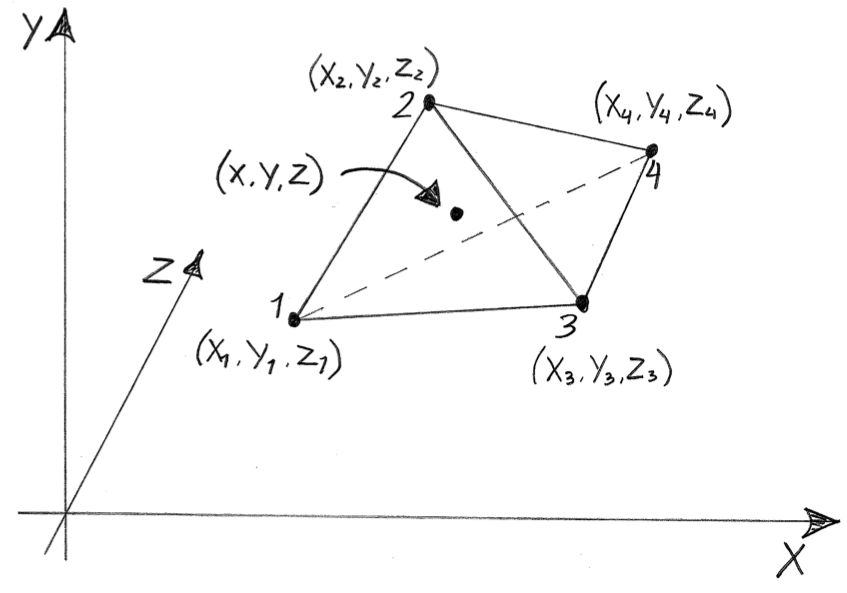 Y
(X₂, Y₂, Z₂)
2
(X₄, Y₄, Z₄)
4
(X, Y, Z)
Z
1
(X₁, Y₁, Z₁)
3
(X₃, Y₃, Z₃)
X